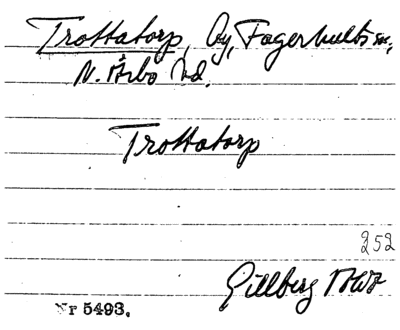 Trottatorp, By, Fagerhults sn.,
N. Åsbo hd.
Trottatorp
252
Gillberg
Nr 5493.